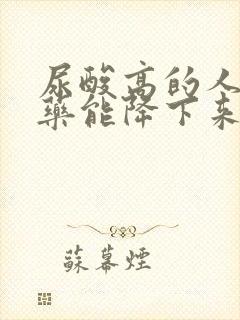 尿酸高的人
药能降下来
蘇幕煙